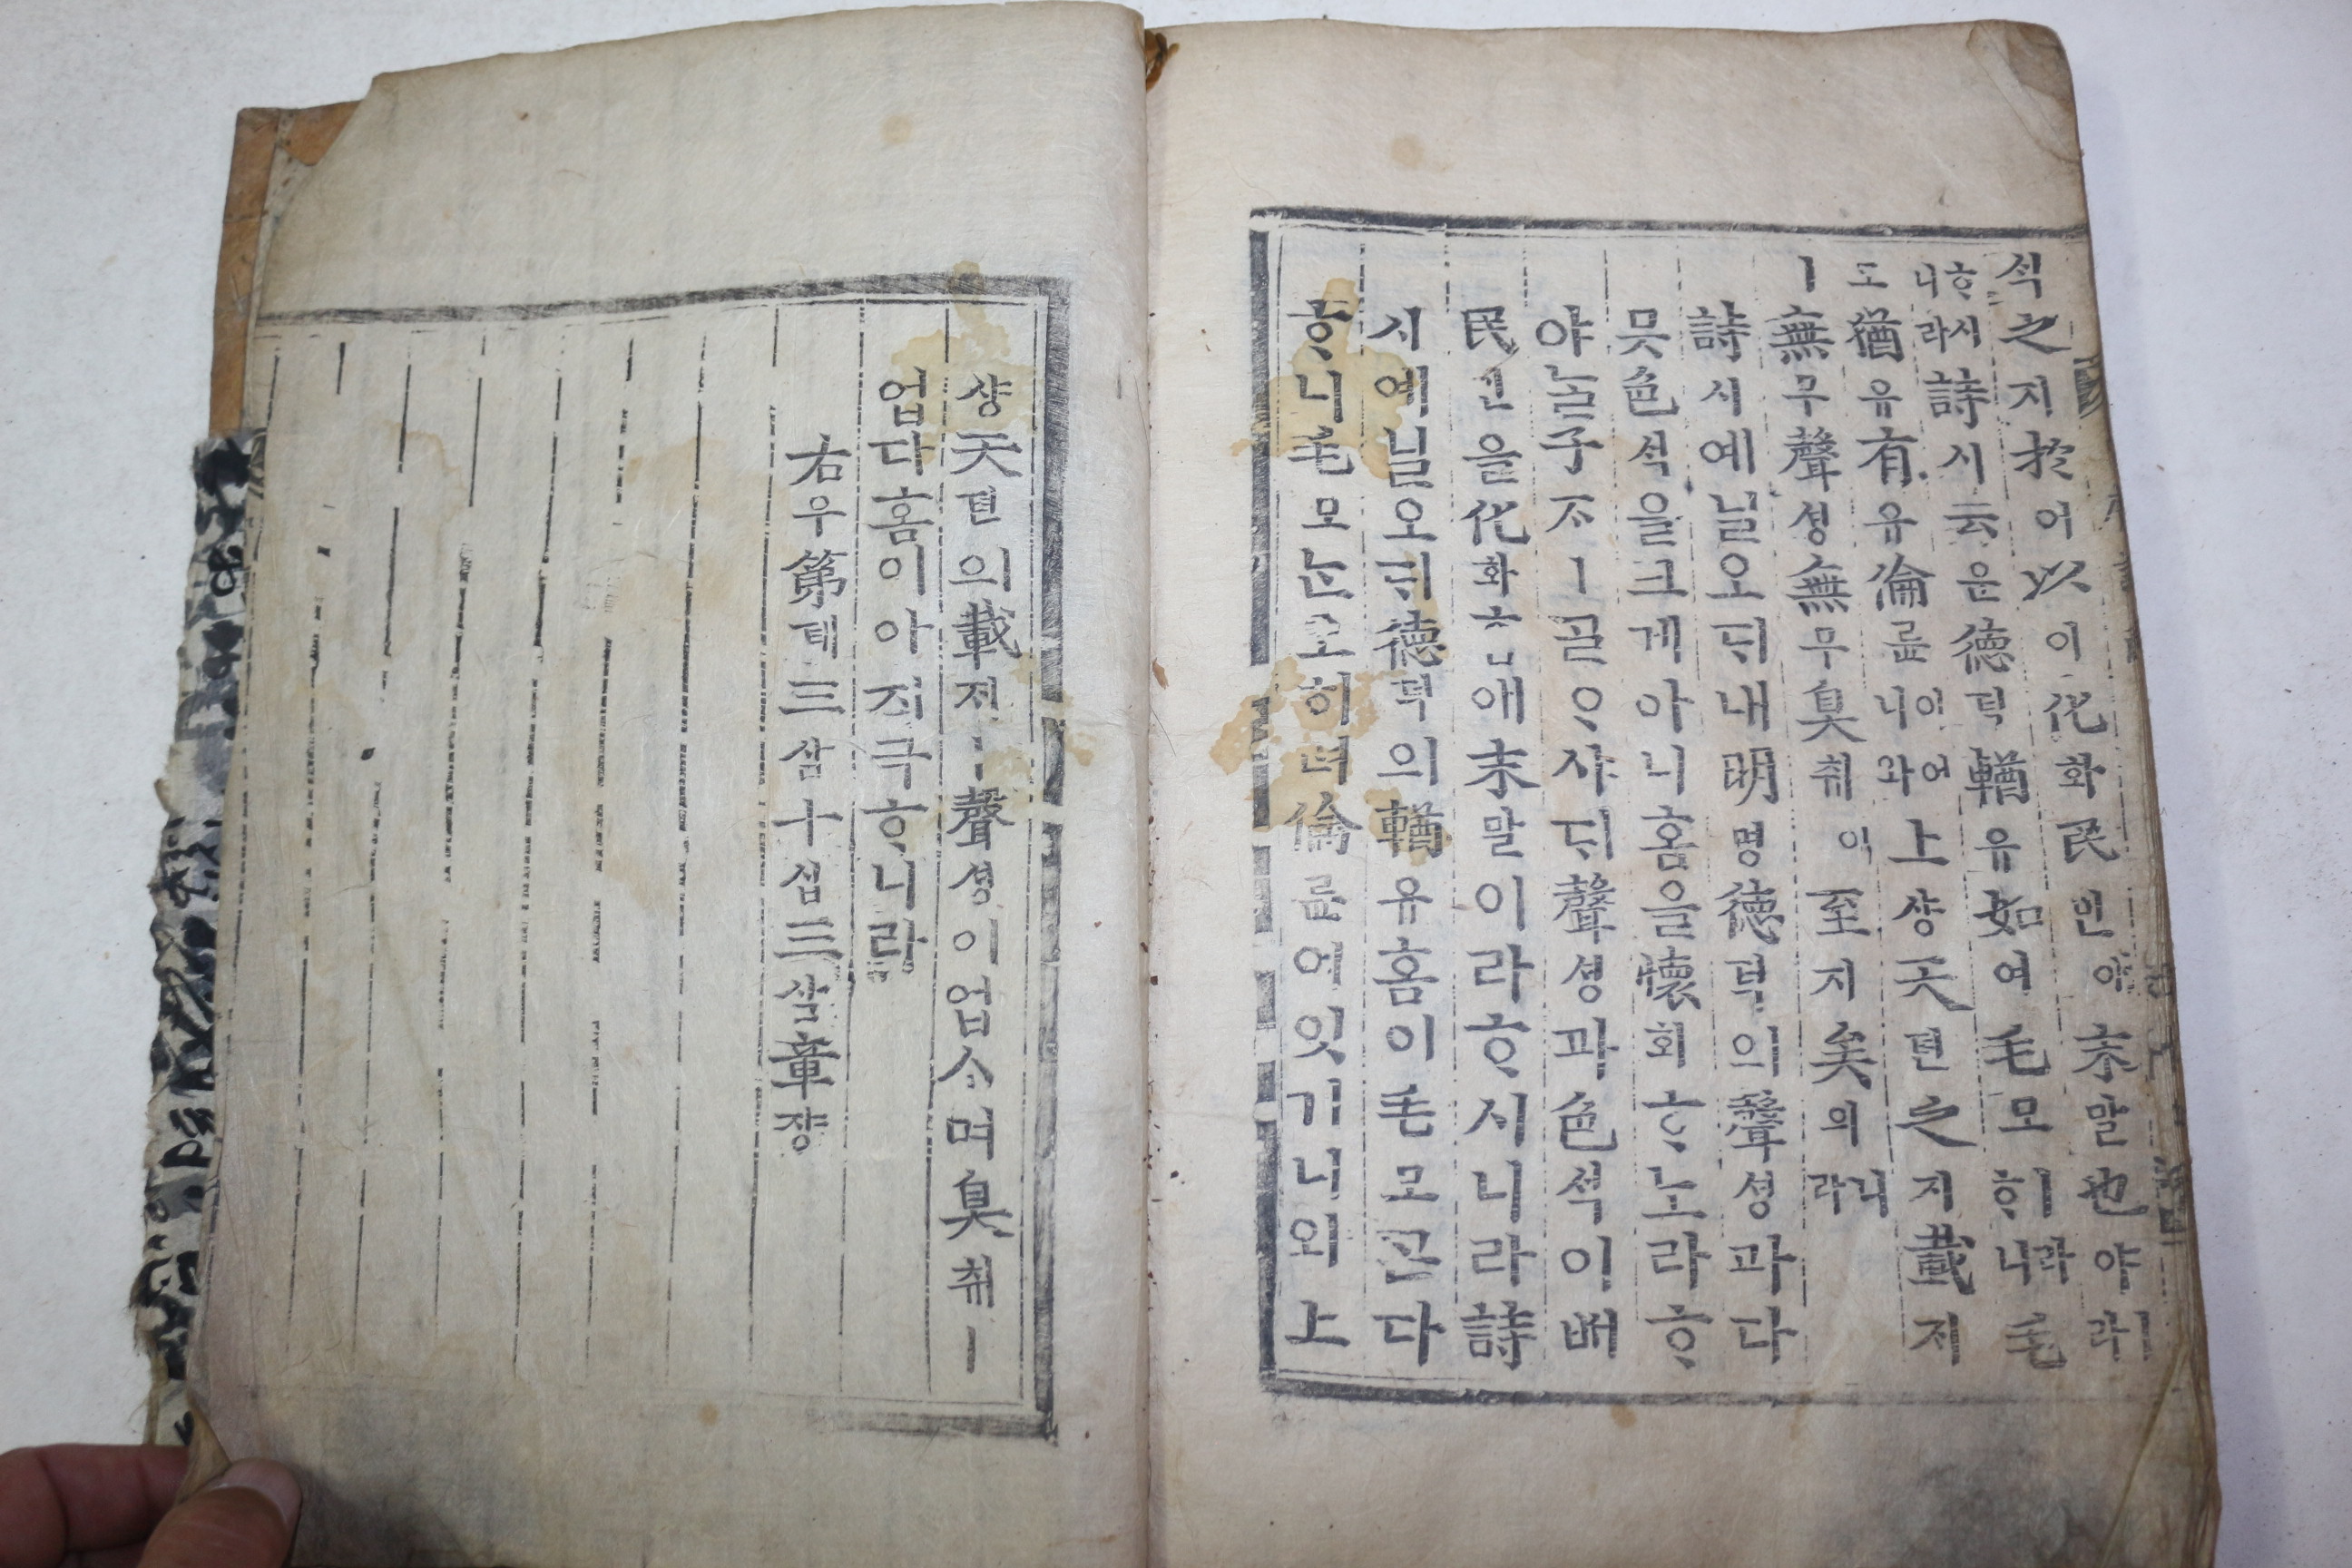 ᄉᆡᆨ之지於어以이化화民민애末말也야ㅣ라
ᄒᆞ시니라詩시云운德덕輶유如여毛모ㅣ라ᄒᆞ니毛
도猶유有유倫륜이어니와上샹天텬之지載ᄌᆡ
ㅣ無무聲셩無무臭취이至지矣의니라
詩시예닐오ᄃᆡ내明명德덕의聲셩과다
믓色ᄉᆡᆨ을크게아니홈을懷회ᄒᆞ노라ᄒᆞ
야ᄂᆞᆯ子ᄌᆞㅣᄀᆞᆯᄋᆞ샤ᄃᆡ聲셩과色ᄉᆡᆨ이ᄡᅥ
民민을化화홈애末말이라ᄒᆞ시니라詩
시예닐오ᄃᆡ德덕의輶유홈이毛모ᄀᆞᆮ다
ᄒᆞ니毛모ᄂᆞᆫ오히려倫륜이잇기니와上
샹天텬의載ᄌᆡㅣ聲셩이업스며臭취ㅣ
업다홈이아지극ᄒᆞ니라
右우第뎨三삼十십三삼章쟝